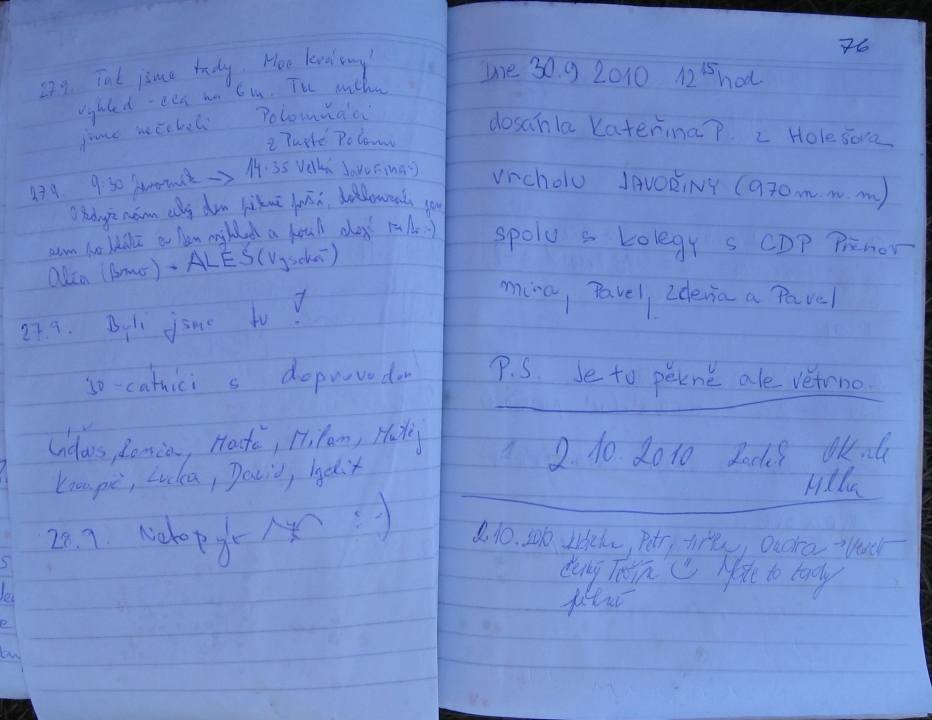 27.9. Tak jsme tady. Moc krásný
výhled - cca na 6 m. Tu mlhu
jsme nečekali Polomňáci
z Pusté Polomi
27.9. 9:30 Javorník → 14:35 Velká Javořina :-)
I když nám celý den pěkně prší,
sem po blátě a ten výhled a pocit stojí za to :-)
Alča (Brno) + ALEŠ (Vysoká)
27.9. Byli jsme tu!
30-cátníci s doprovodem
Martă, Milan, Matěj
Lucka, David,
28.9. Netopýr :-)
76
Dne 30.9 2010 12 15 hod
dosáhla Kateřina P. z Holešova
vrcholu JAVOŘINY (970 m.n.m)
spolu s kolegy s CDP Přerov
Míra, Pavel, Zdeňa a Pavel
P.S. Je tu pěkně ale větrno.
2.10.2010 Radek OK ale
Mlha
2.10.2010 Petr, Jirka, Ondra
Český Těšín Máte to tady
pěkné